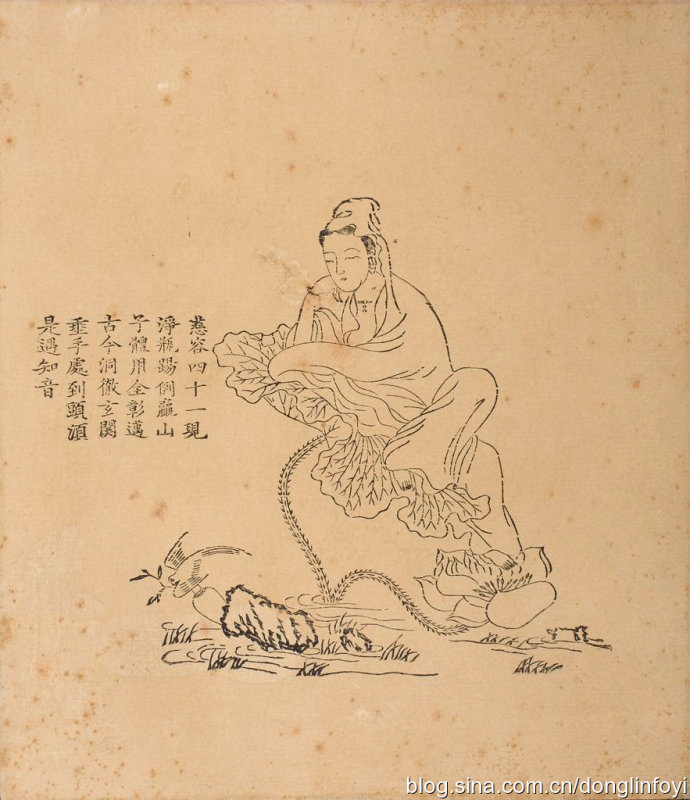 慈容四十一現
淨瓶踢倒溈山
子體用全彰邁
古今洞徹玄関
垂手處到頭湏
是遇知音
blog.sina.com.cn/donglinfoyi